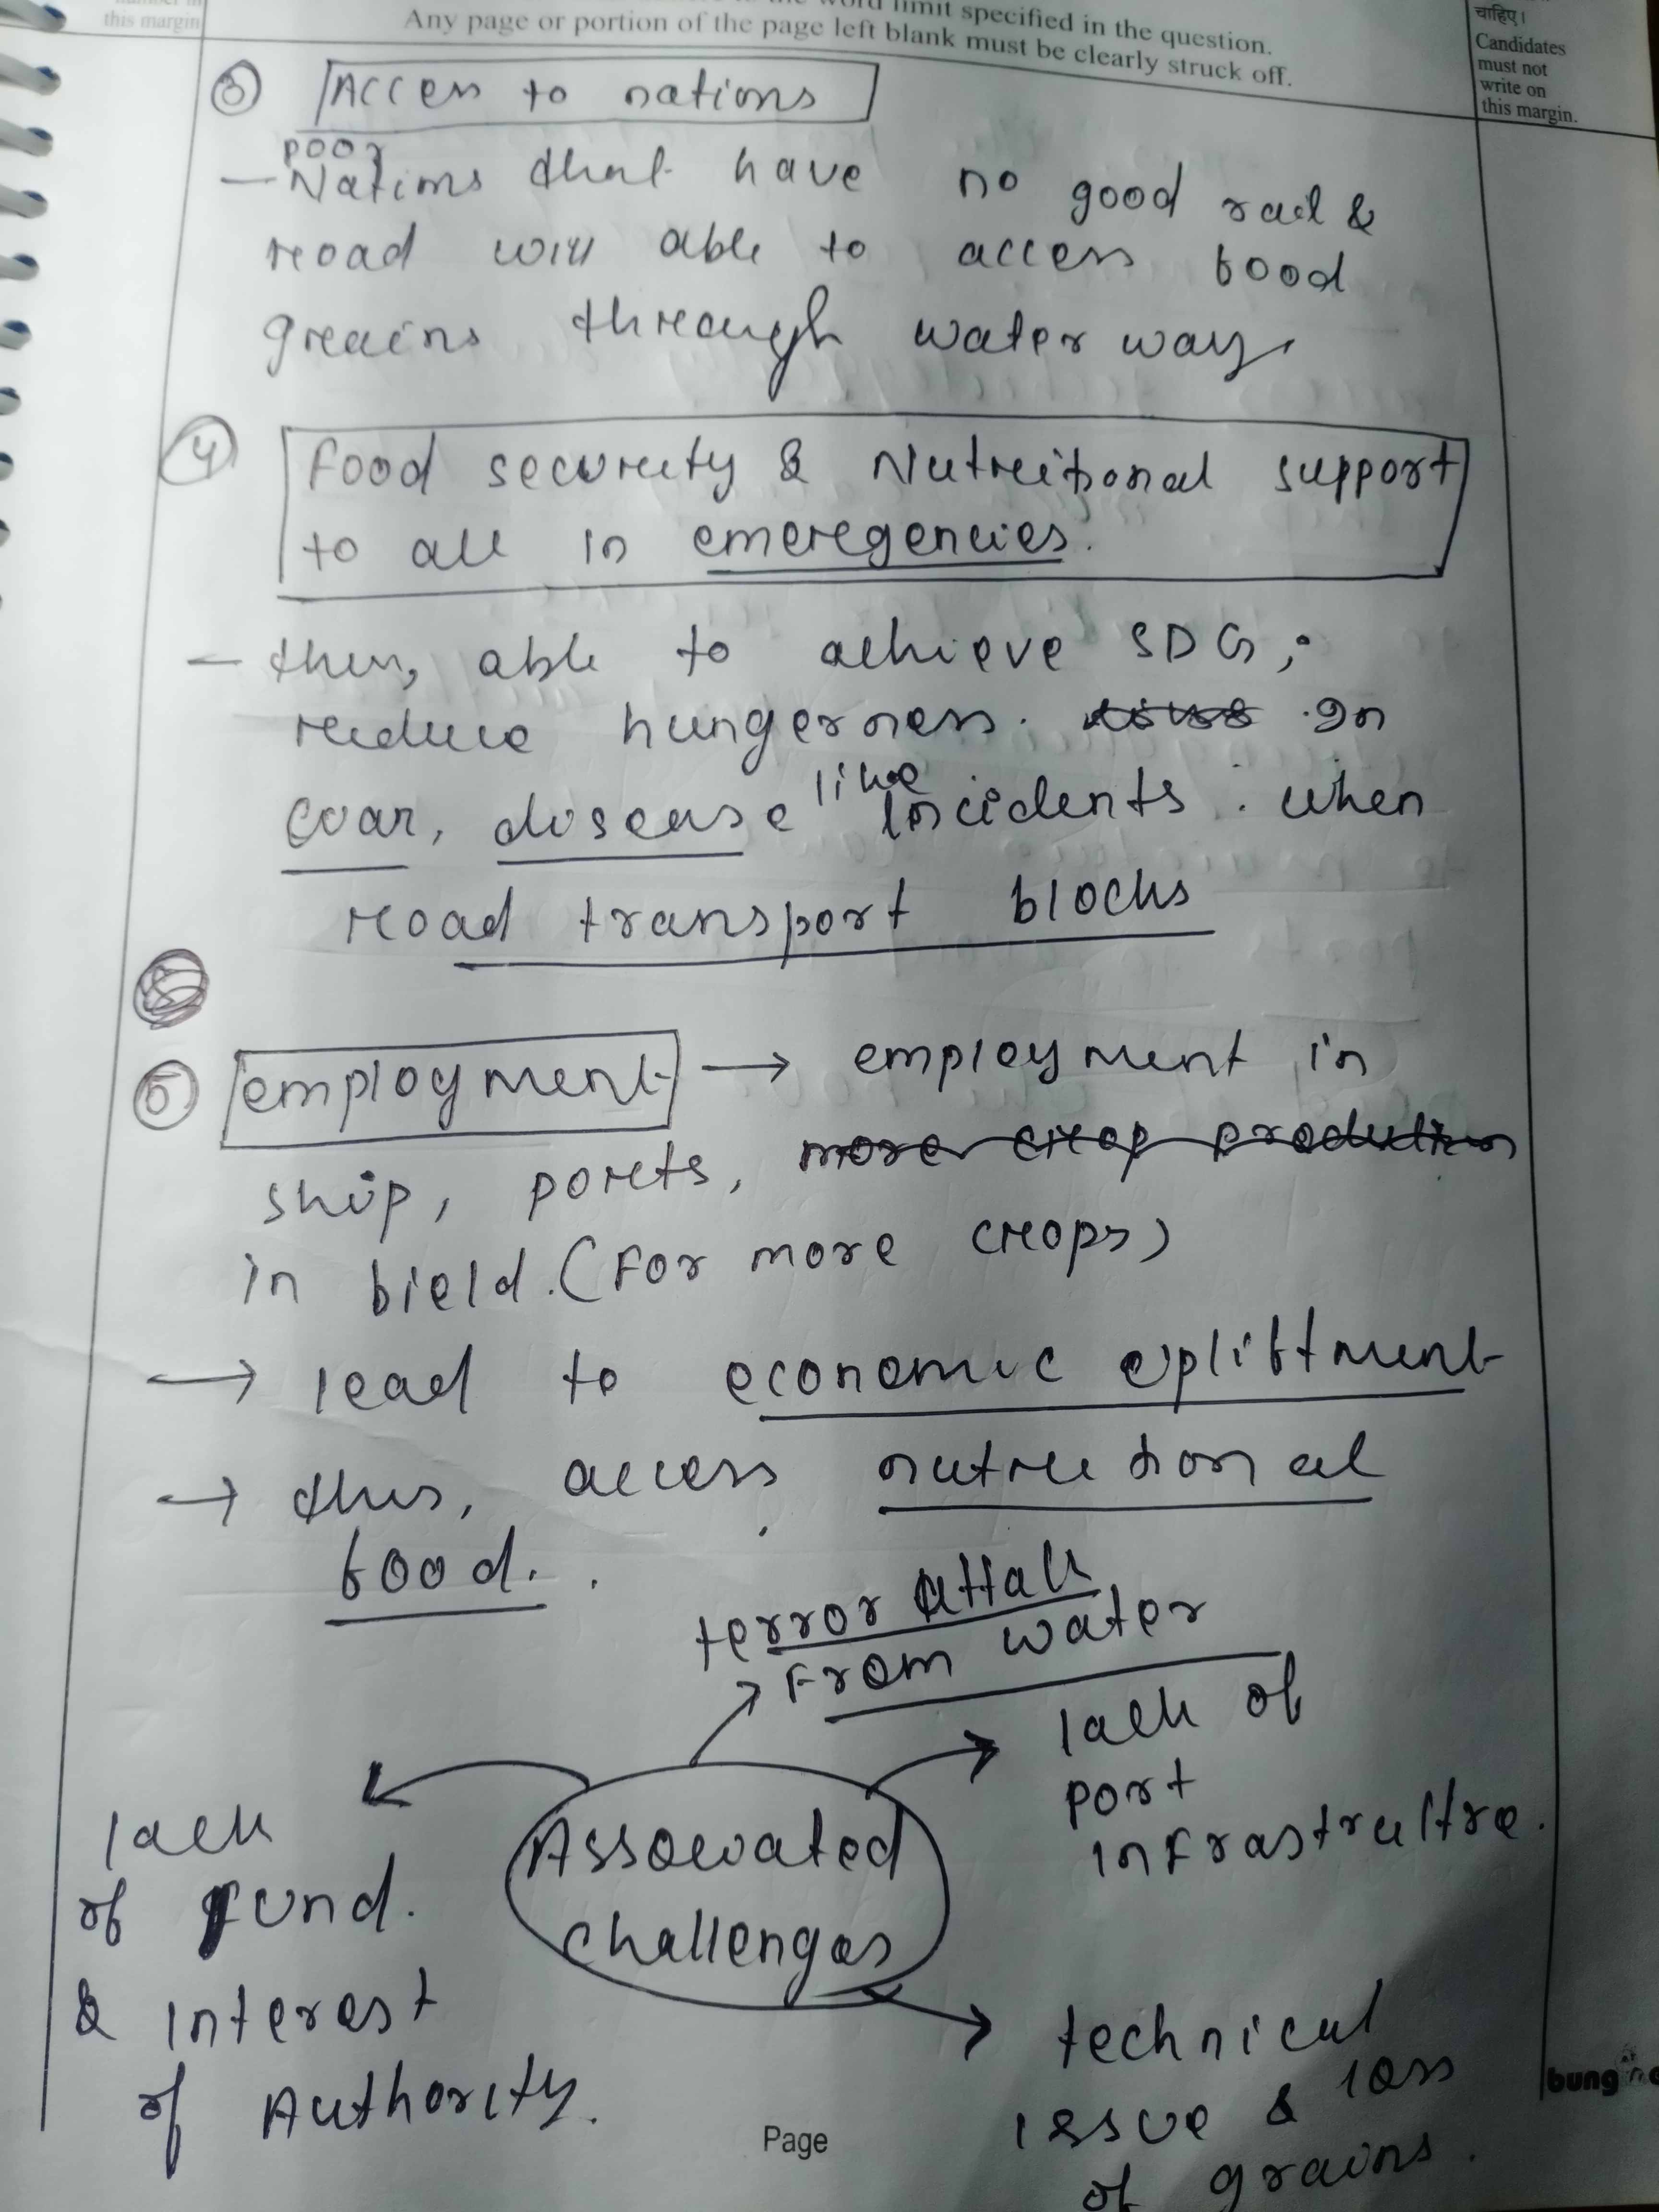 this margin
limit specified in the question.
Any page or portion of the page left blank must be clearly struck off.
चाहिए।
Candidates
must not
write on
this margin.
③ Access to nations
poor
— Nations that have no good rail &
road will able to access food
grains through water way.
④ Food security & Nutritional support
to all in emergencies.
— thus, able to achieve SDG;
reduce hungerness. In
war, disease like incidents. when
road transport blocks
⑤ employment → employment in
ship, ports, more crop production
in field. (For more crops)
→ lead to economic upliftment
→ thus, access nutritional
food.
terror attack
From water
lack of
port
infrastructre.
lack
of fund.
& interest
of Authority.
Associated
challenges
technical
issue & loss
of grains.
Page